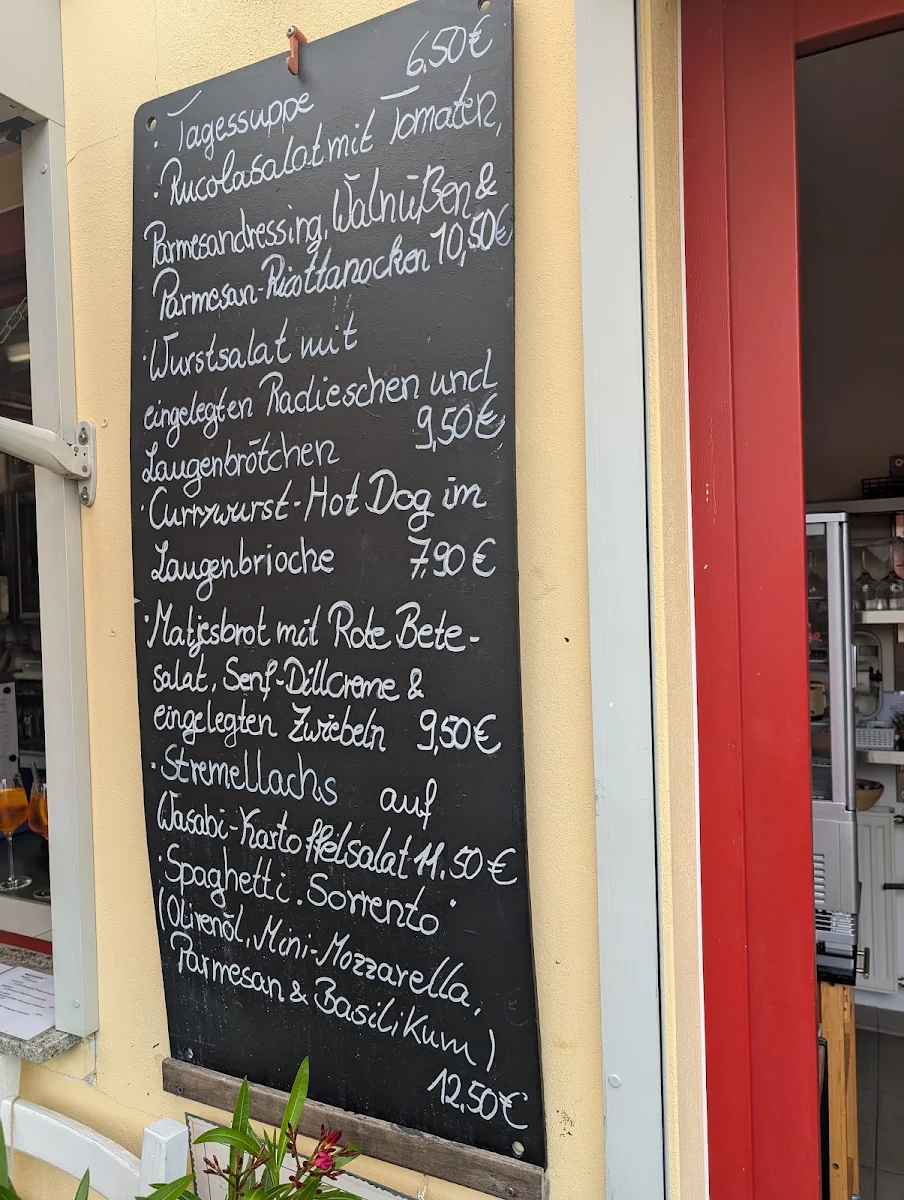 · Tagessuppe 6,50€
· Rucolasalat mit Tomaten,
Parmesandressing, Walnüßen &
Parmesan-Ricottanocken 10,50€
· Wurstsalat mit
eingelegten Radieschen und
Laugenbrötchen 9,50€
· Currywurst-Hot Dog im
Laugenbrioche 7,90€
· Matjesbrot mit Rote Bete-
salat, Senf-Dillcreme &
eingelegten Zwiebeln 9,50€
· Stremellachs auf
Wasabi-Kartoffelsalat 11.50€
· Spaghetti „Sorrento“
(Olivenöl, Mini-Mozzarella,
Parmesan & Basilikum)
12.50€